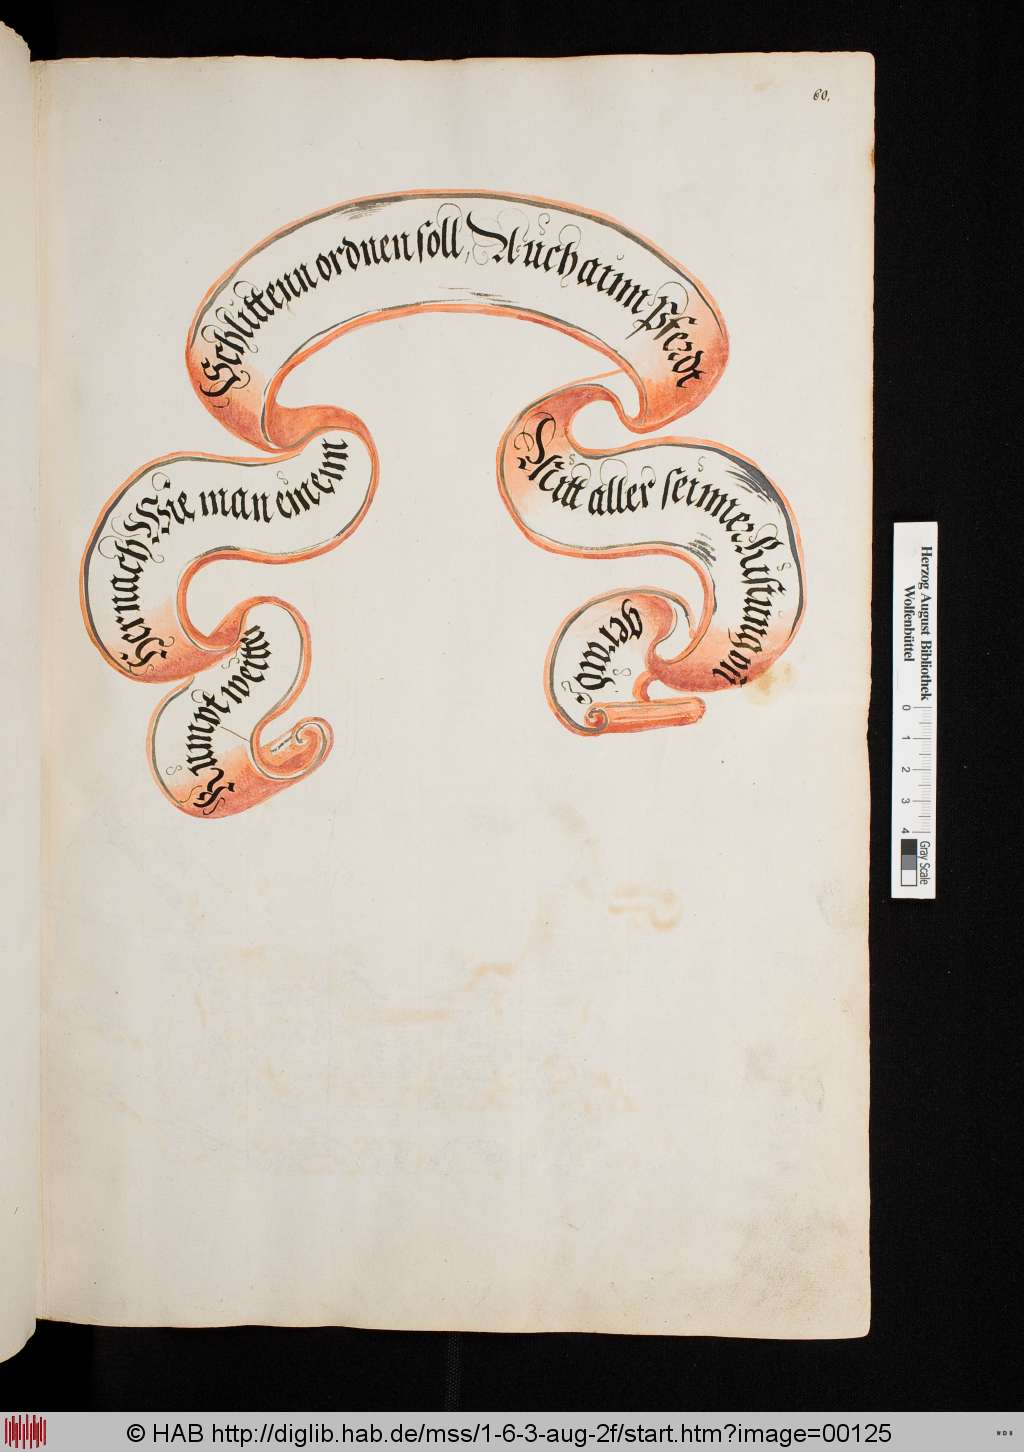 60.
Kunndt werdō
Hernach Wie man eineim
Schlittenn ordnen soll, Auch aim Pferdt
Mitt aller seinne Ristung vñ
geraid
Herzog August Bibliothek
Wolfenbüttel
0 1 2 3 4
Gray Scale
© HAB http://diglib.hab.de/mss/1-6-3-aug-2f/start.htm?image=00125